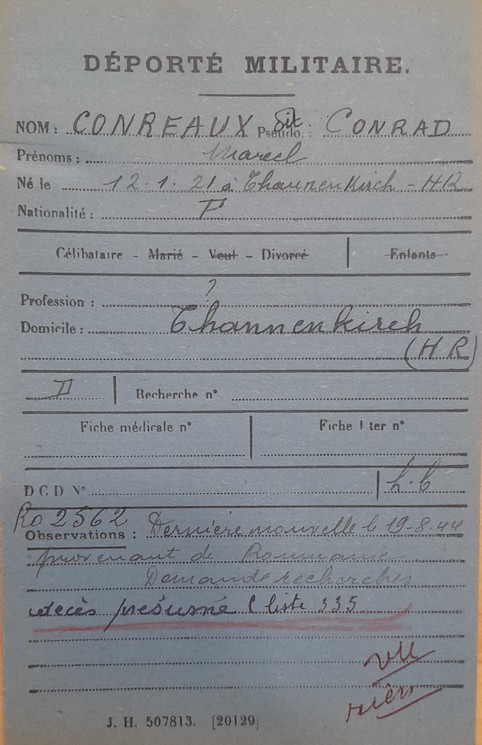 DÉPORTÉ MILITAIRE.
NOM : CONREAUX Pseudo : dit CONRAD
Prénoms : Marcel
Né le 12.1.21 à Thannenkirch - HR
Nationalité : F
Célibataire - Marié - Veuf - Divorcé Enfants
Profession : ?
Domicile : Thannenkirch
(HR)
D Recherche n°
Fiche médicale n° Fiche 1 ter n°
D C D N° h.C
Ro 2562
Observations : Dernière nouvelle le 19-8-44
provenant de Roumanie
Demande recherches
décès présumé liste 335
vu
J. H. 507813. [20129]